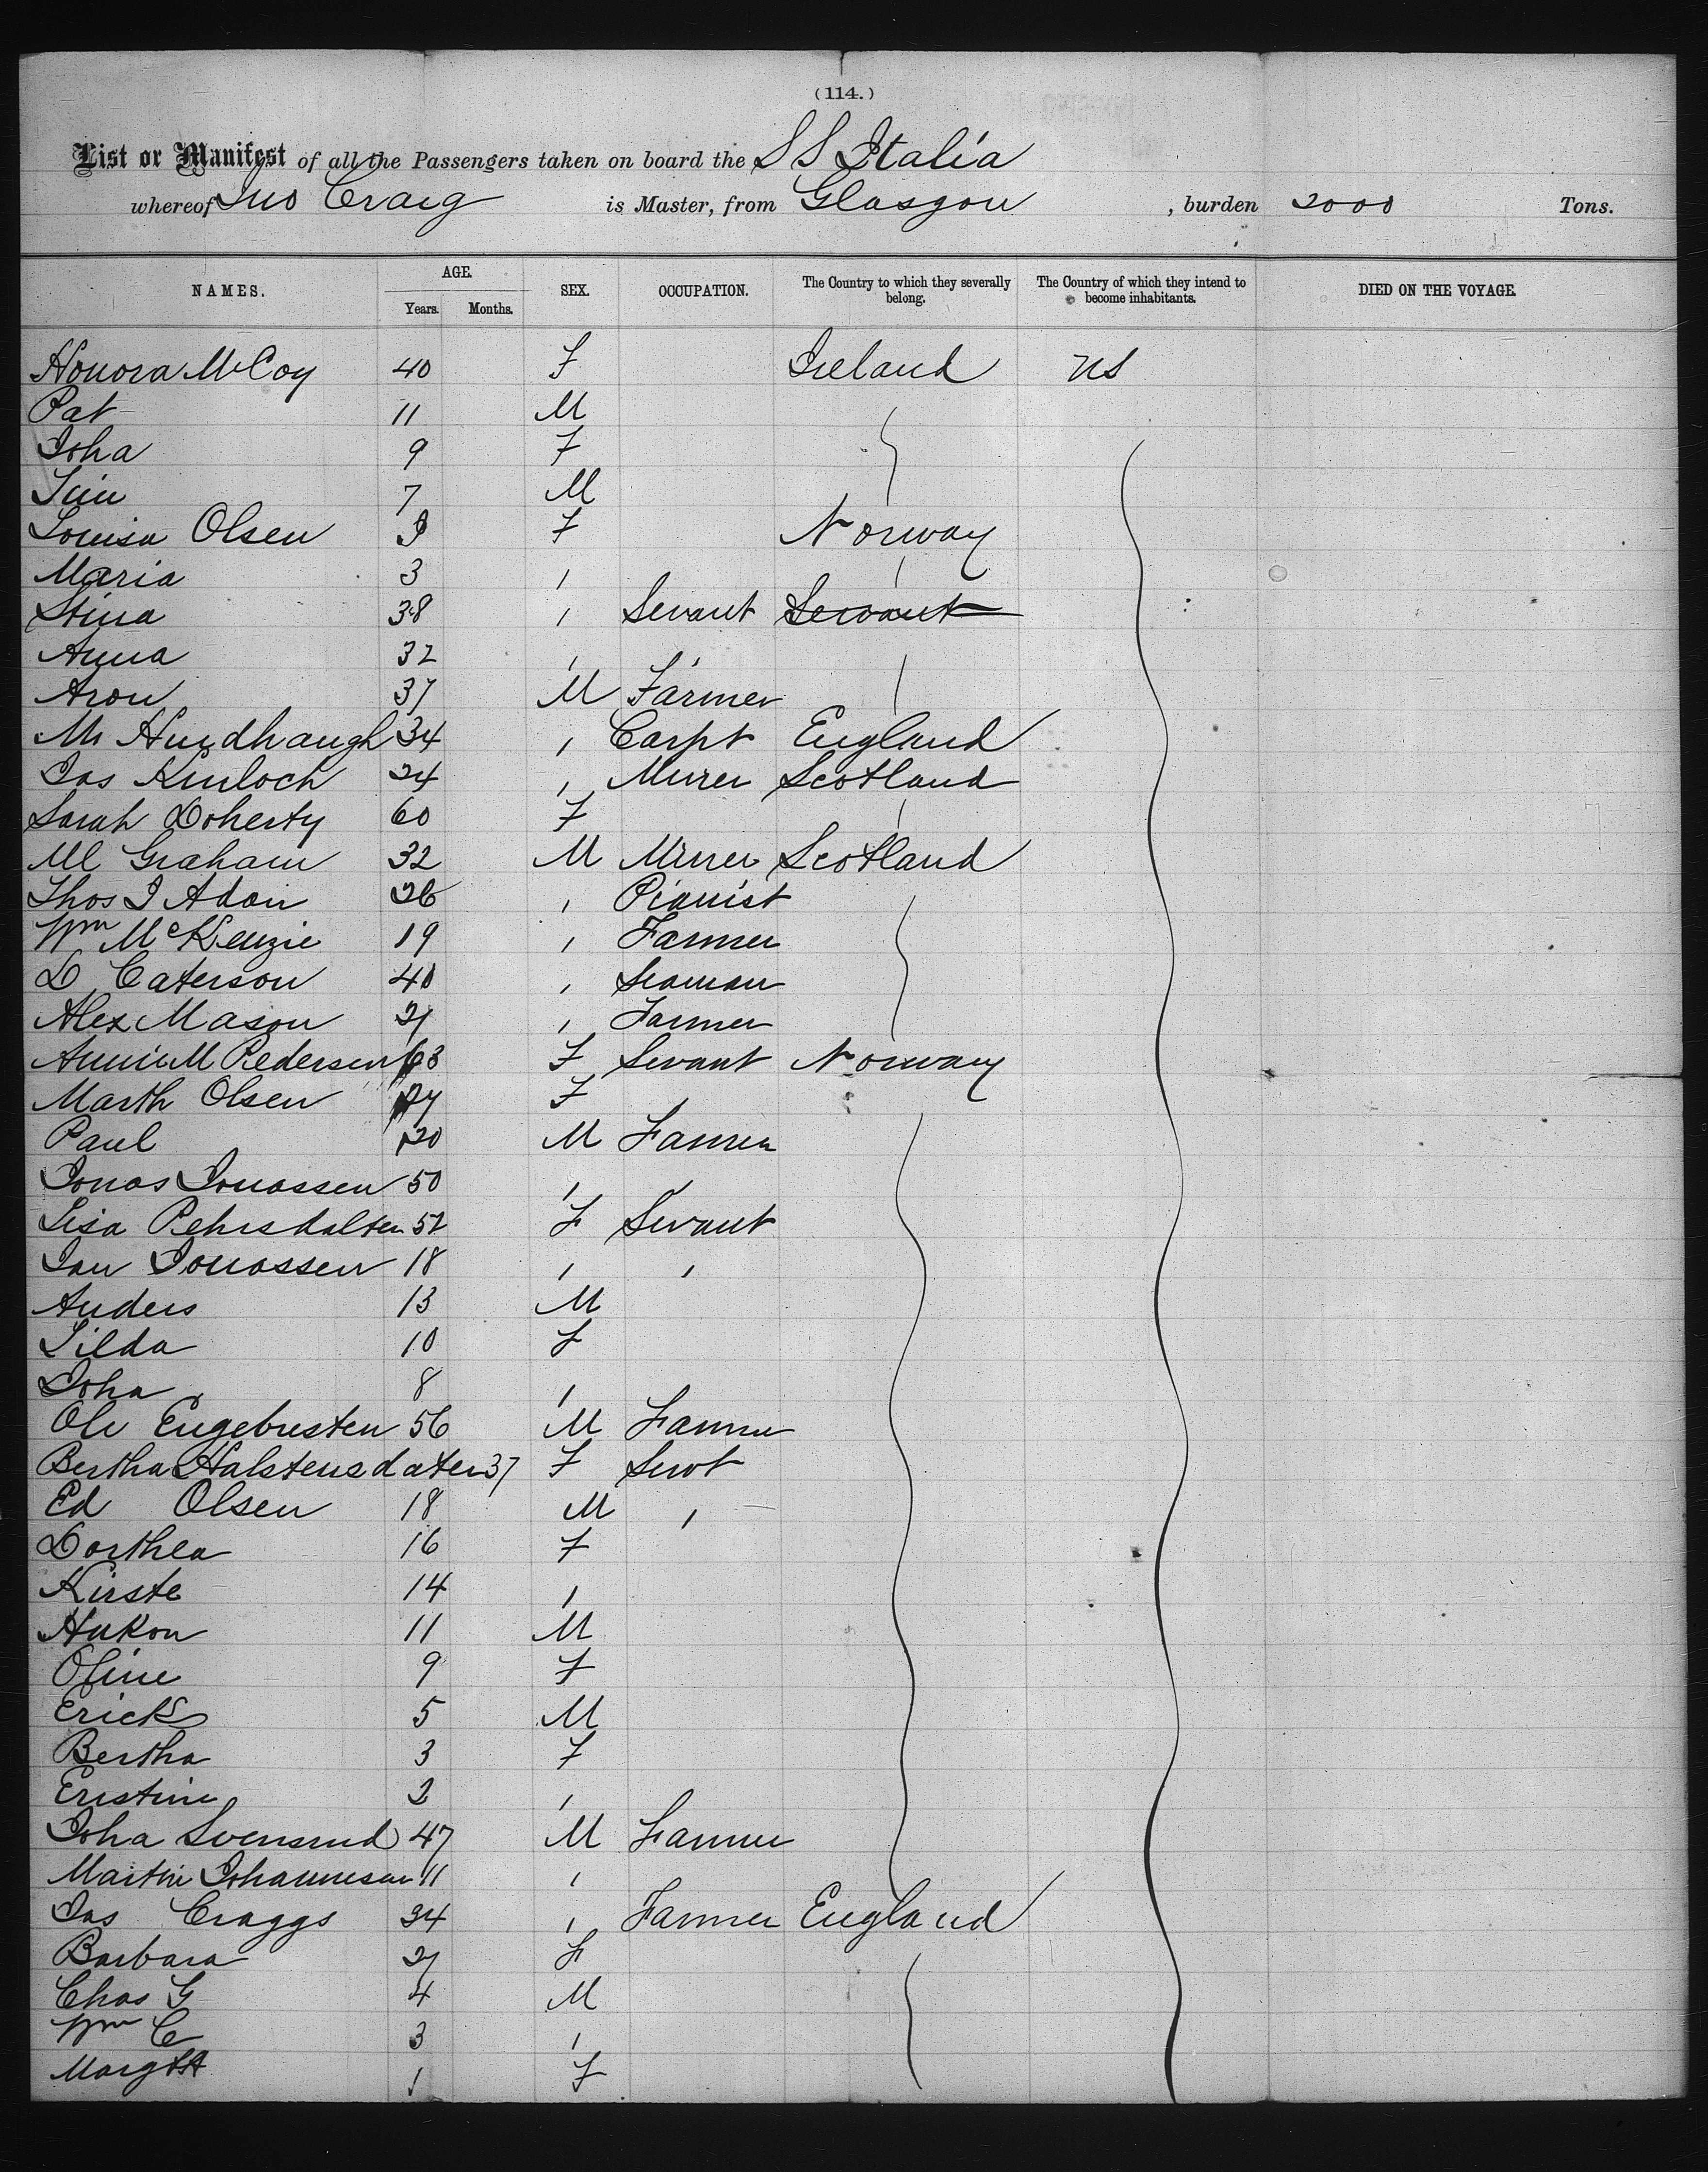 (114.)
List or Manifest of all the Passengers taken on board the S S Italia
whereof Jno Craig is Master, from Glasgow , burden 2000 Tons.
NAMES. AGE. Years. Months. SEX. OCCUPATION. The Country to which they severally belong. The Country of which they intend to become inhabitants. DIED ON THE VOYAGE.
Honora McCoy 40 F Ireland US
Pat 11 M
Joha 9 F
Jim 7 M
Louisa Olsen F Norway
Maria 3 "
Stina 38 " Servant Servant
Anna 32 " "
Aron 37 M Farmer
34 " Carpt England
Jas Kinloch 24 " Miner Scotland
Sarah Doherty 60 F "
Ml Graham 32 M Miner Scotland
Thos J Adair 26 " Pianist
Wm McKenzie 19 " Farmer
D Caterson 40 " Seaman
Alex Mason 21 " Farmer
Annie M Pedersen 63 F Servant Norway
Marth Olsen 24 F
Paul 20 M Farmer
Jonas Jonassen 50 " "
Lisa 52 F Servant
Jan Jonassen 18 " "
Anders 13 M
Tilda 10 F
Joha 8 "
Ole Engebresten 56 M Farmer
Bertha Halstensdater 37 F Servt
Ed Olsen 18 M "
Dorthea 16 F
Kirste 14 "
Hakon 11 M
Oline 9 F
Erick 5 M
Bertha 3 F
Eristine 2 "
Joha Svensrud 47 M Farmer
Martin Johannesen 11 "
Jas Craggs 34 " Farmer England
Barbara 27 F
Chas G 4 M
Wm C 3 "
Margt A 1 F